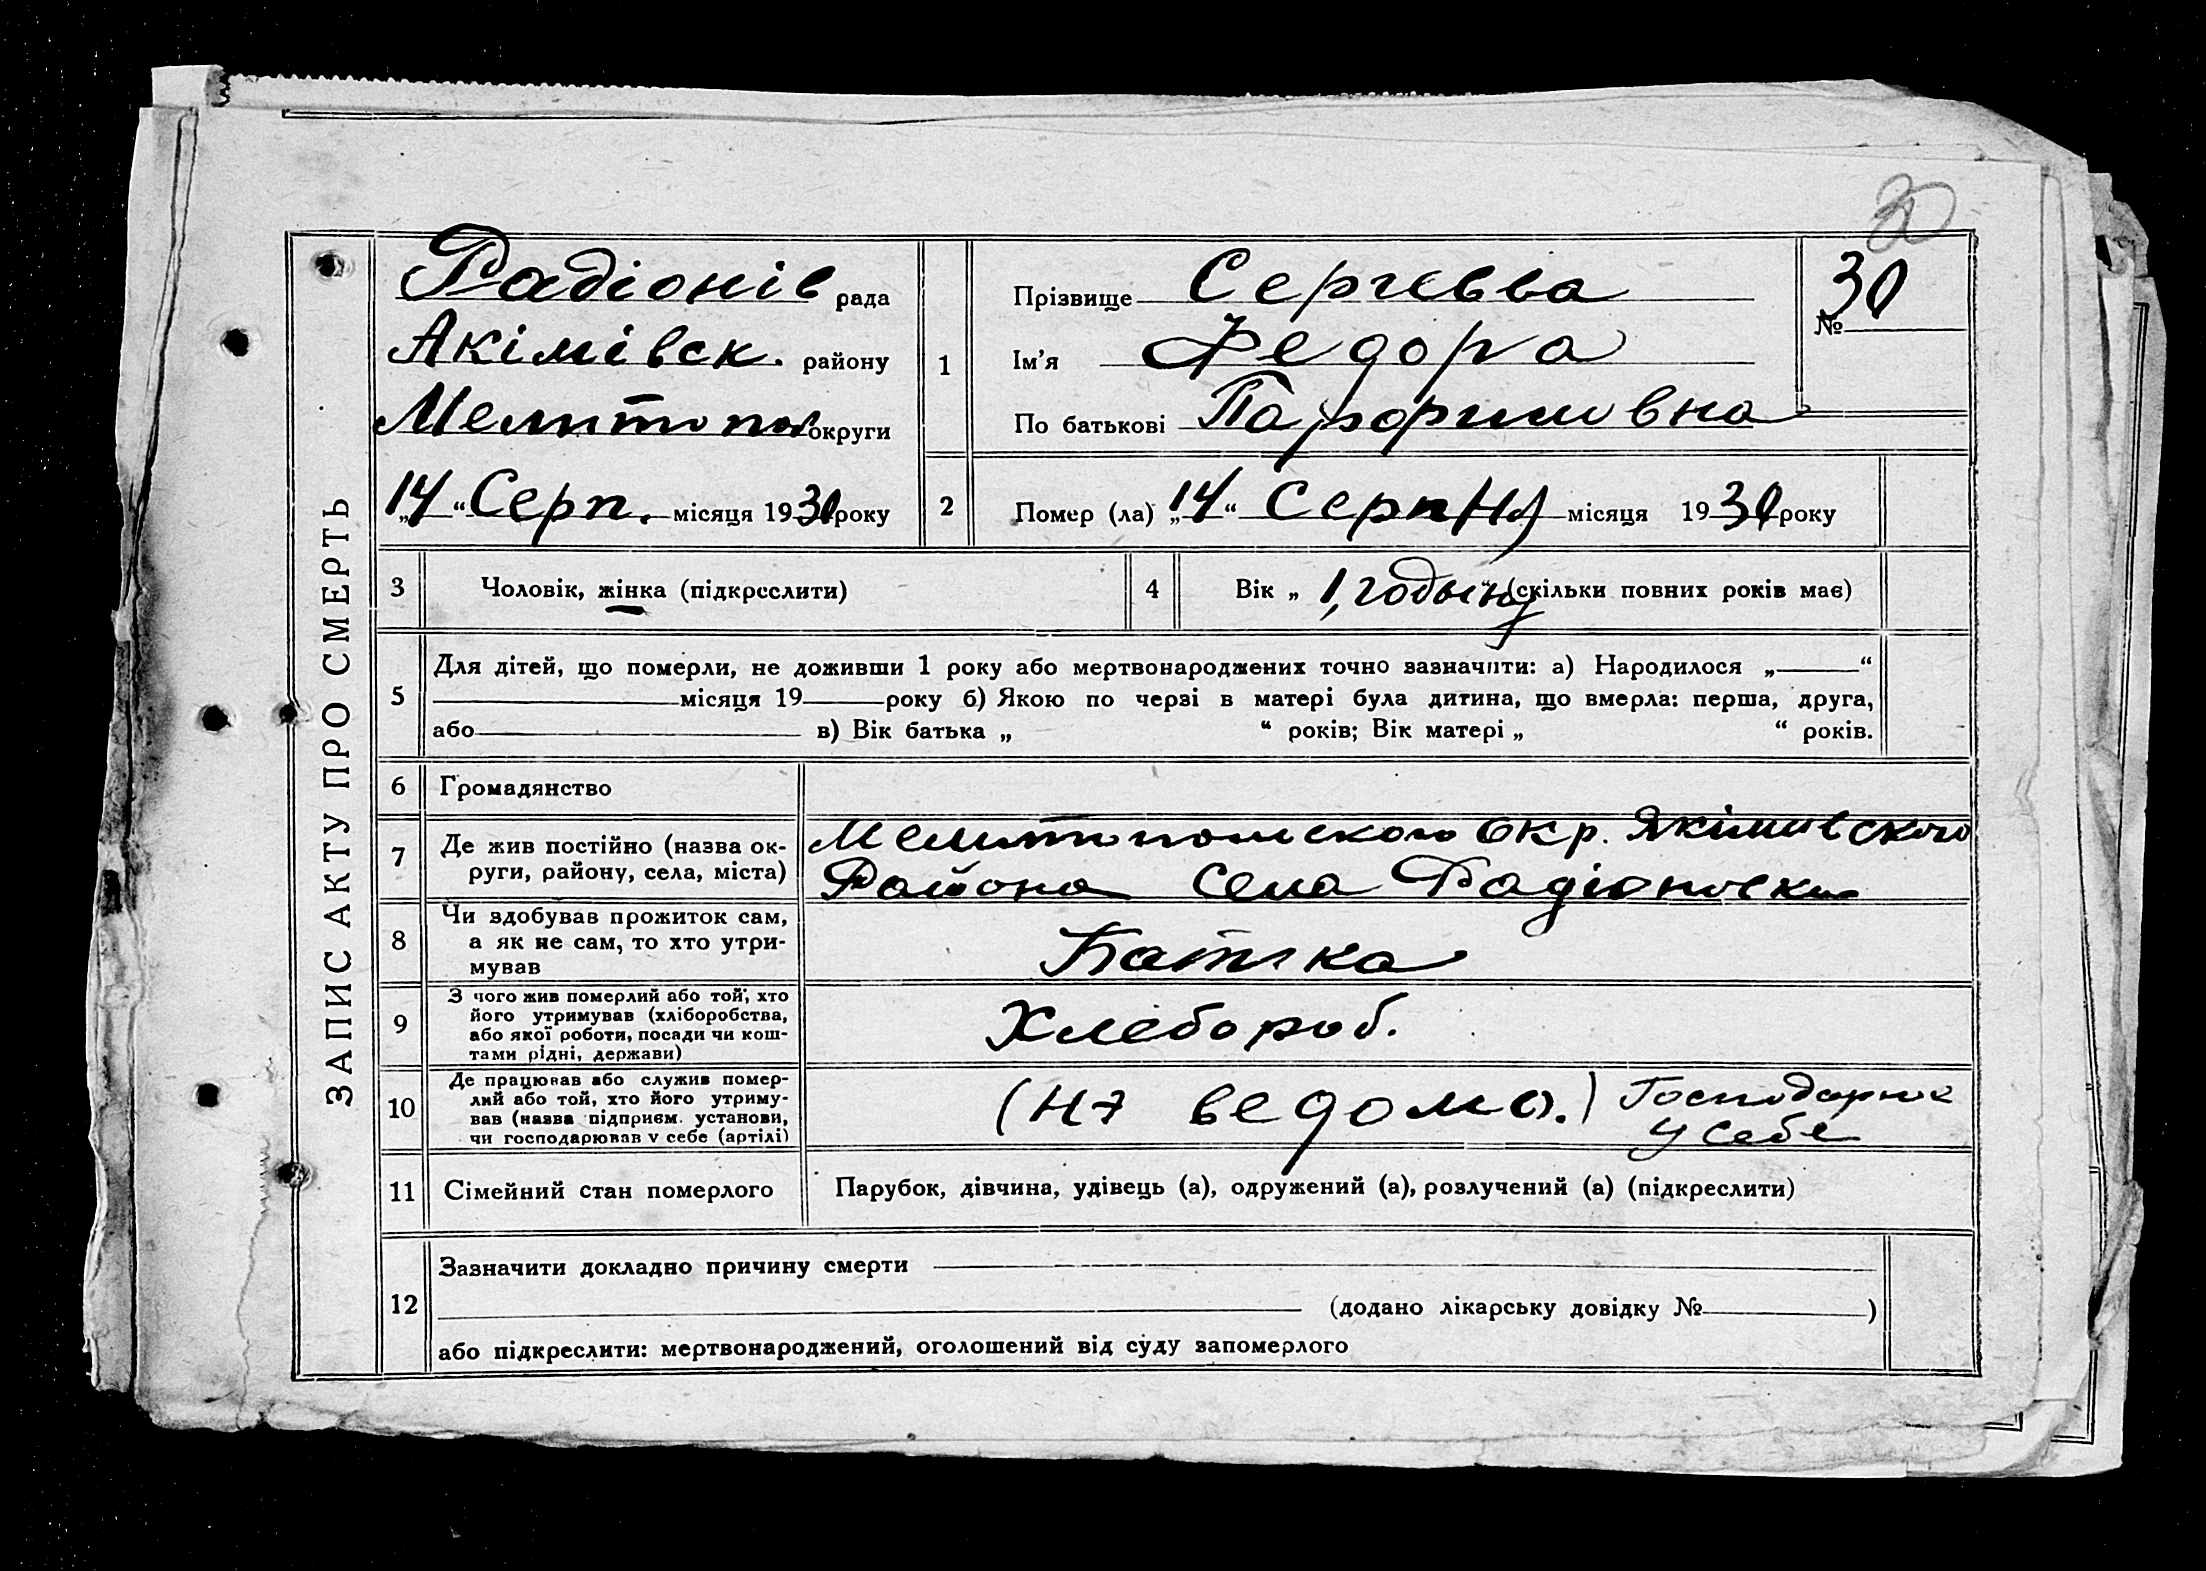 30
ЗАПИС АКТУ ПРО СМЕРТЬ
Радіонів рада
Акімівск. району
Мелитопол округи
„14“ Серп. місяця 1930 року
1
Прізвище Сергєєва
Ім'я Федора
По батькові Парфишовна
№ 30
2 Помер (ла) „14“ Серпня місяця 1930 року
3 Чоловік, жінка (підкреслити)
4 Вік „1, годыну“ (скільки повних років має)
5 Для дітей, що померли, не доживши 1 року або мертвонароджених точно зазначити: а) Народилося „ “
місяця 19 року б) Якою по черзі в матері була дитина, що вмерла: перша, друга,
або в) Вік батька „ “ років; Вік матері „ “ років.
6 Громадянство
7 Де жив постійно (назва округи, району, села, міста)
Мелитопольского Окр. Якимивского
Района Села Радіоновки
8 Чи здобував прожиток сам,
а як не сам, то хто утри-
мував
Батька
9 З чого жив померлий або той, хто
його утримував (хліборобства,
або якої роботи, посади чи кош-
тами рідні, держави)
Хлебороб.
10 Де працював або служив помер-
лий або той, хто його утриму-
вав (назва підприєм. установи,
чи господарював у себе (артілі)
(не ведомо.) Господарює
у себе
11 Сімейний стан померлого
Парубок, дівчина, удівець (а), одружений (а), розлучений (а) (підкреслити)
12 Зазначити докладно причину смерти
(додано лікарську довідку № )
або підкреслити: мертвонароджений, оголошений від суду запомерлого